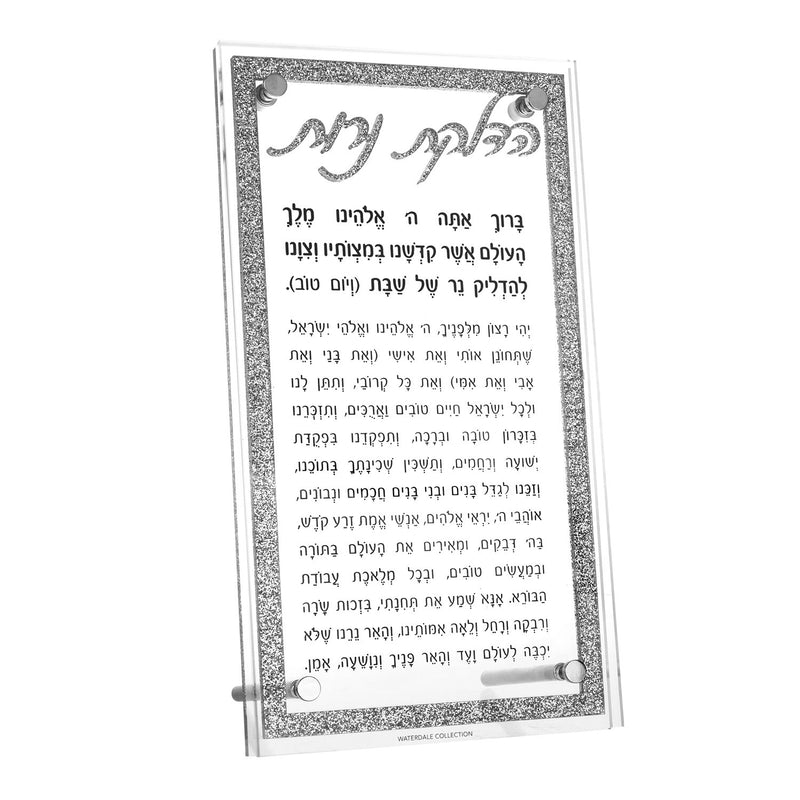 הדלקת נרות
בָּרוּךְ אַתָּה ה׳ אֱלֹהֵינוּ מֶלֶךְ
הָעוֹלָם אֲשֶׁר קִדְּשָׁנוּ בְּמִצְוֹתָיו וְצִוָּנוּ
לְהַדְלִיק נֵר שֶׁל שַׁבָּת (וְיוֹם טוֹב).
יְהִי רָצוֹן מִלְּפָנֶיךָ, ה׳ אֱלֹהֵינוּ וֵאלֹהֵי יִשְׂרָאֵל,
שֶׁתְּחוֹנֵן אוֹתִי וְאֶת אִישִׁי (וְאֶת בָּנַי וְאֶת
אָבִי וְאֶת אִמִּי) וְאֶת כָּל קְרוֹבַי, וְתִתֵּן לָנוּ
וּלְכָל יִשְׂרָאֵל חַיִּים טוֹבִים וַאֲרֻכִּים, וְתִזְכְּרֵנוּ
בְּזִכְרוֹן טוֹבָה וּבְרָכָה, וְתִפְקְדֵנוּ בִּפְקֻדַּת
יְשׁוּעָה וְרַחֲמִים, וְתַשְׁכִּין שְׁכִינָתְךָ בְּתוֹכֵנוּ,
וְזַכֵּנוּ לְגַדֵּל בָּנִים וּבְנֵי בָנִים חֲכָמִים וּנְבוֹנִים,
אוֹהֲבֵי ה׳, יִרְאֵי אֱלֹהִים, אַנְשֵׁי אֱמֶת זֶרַע קֹדֶשׁ,
בַּה׳ דְּבֵקִים, וּמְאִירִים אֶת הָעוֹלָם בַּתּוֹרָה
וּבְמַעֲשִׂים טוֹבִים, וּבְכָל מְלֶאכֶת עֲבוֹדַת
הַבּוֹרֵא. אָנָּא שְׁמַע אֶת תְּחִנָּתִי, בִּזְכוּת שָׂרָה
וְרִבְקָה וְרָחֵל וְלֵאָה אִמּוֹתֵינוּ, וְהָאֵר נֵרֵנוּ שֶׁלֹּא
יִכְבֶּה לְעוֹלָם וָעֶד וְהָאֵר פָּנֶיךָ וְנִוָּשֵׁעָה, אָמֵן.
WATERDALE COLLECTION